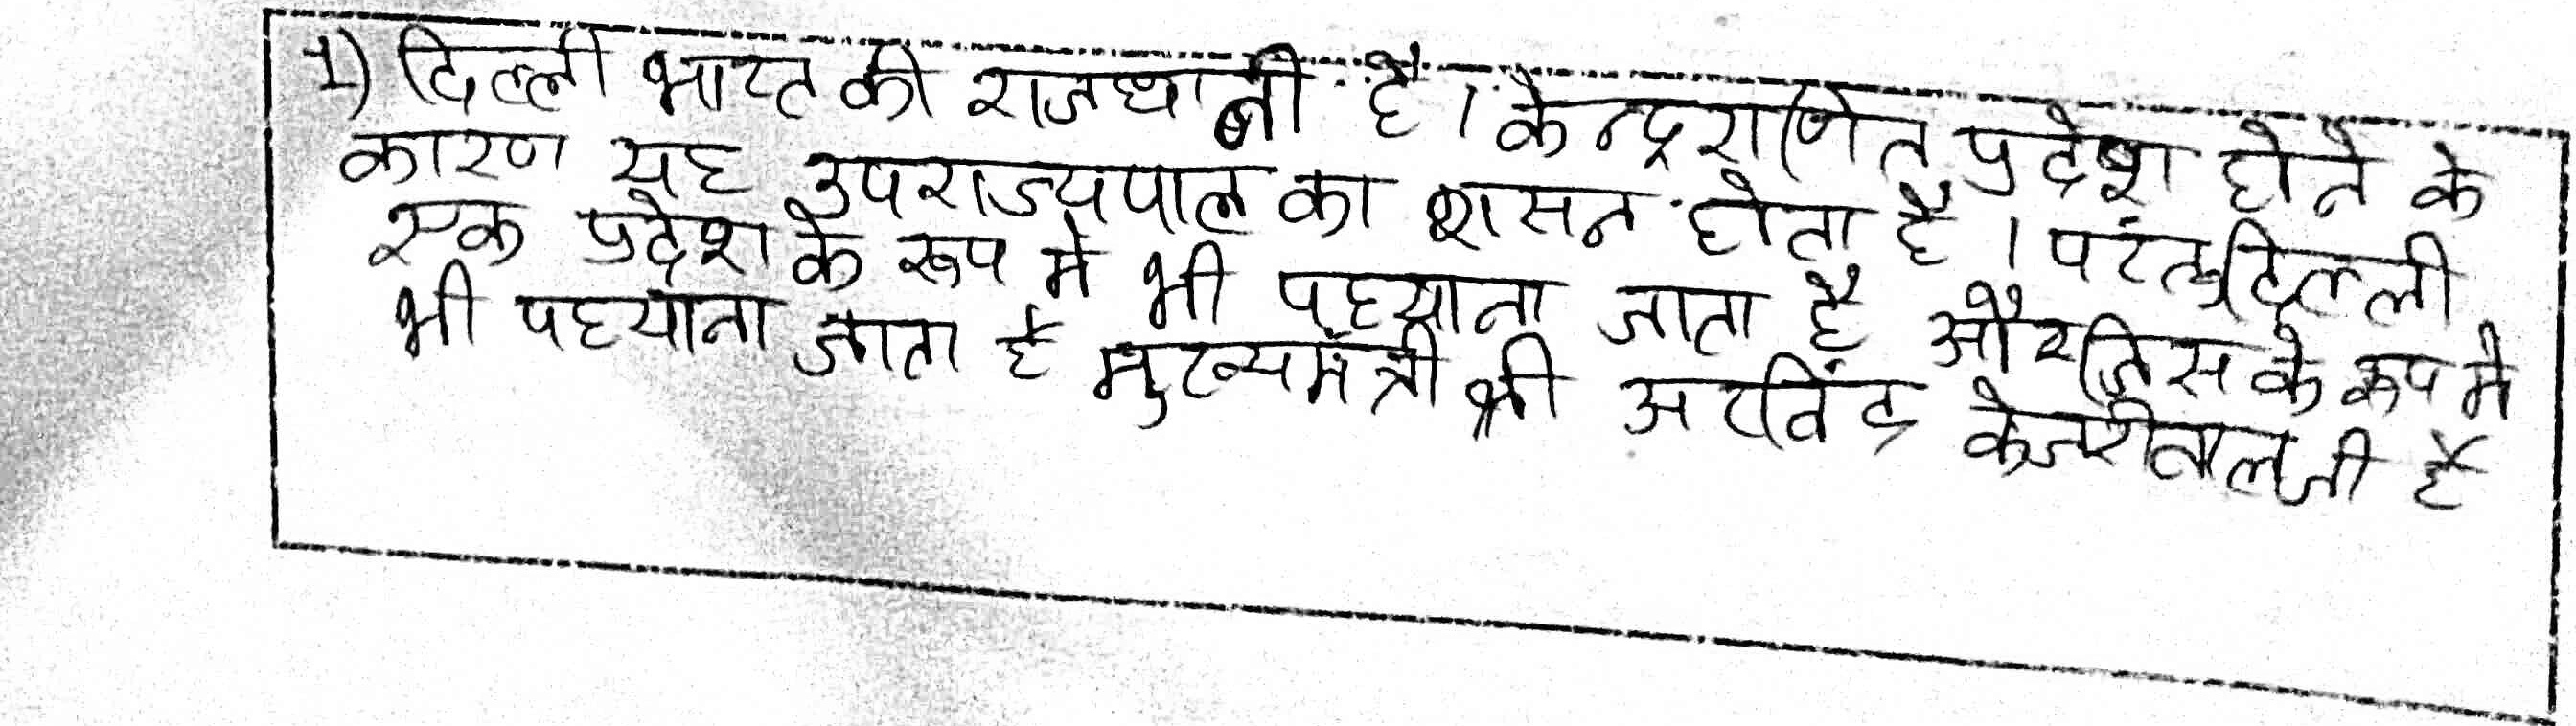 1) दिल्ली भारत की राजधानी है। केन्द्रशाषित प्रदेश होने के
कारण यह उपराज्यपाल का शासन होता है। परंतु दिल्ली
एक प्रदेश के रूप मे भी पहचाना जाता है और जिस के रूप मे
भी पहचाना जाता है मुख्यमंत्री श्री अरविंद केजरीवाल जी है